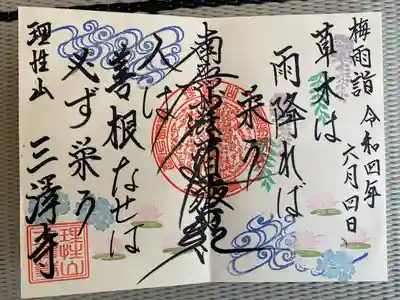 梅雨詣 令和四年六月四日
草木は
雨降れば
栄う
南無妙法蓮華経
人は
善根なせば
必ず栄う
理性山 三澤寺